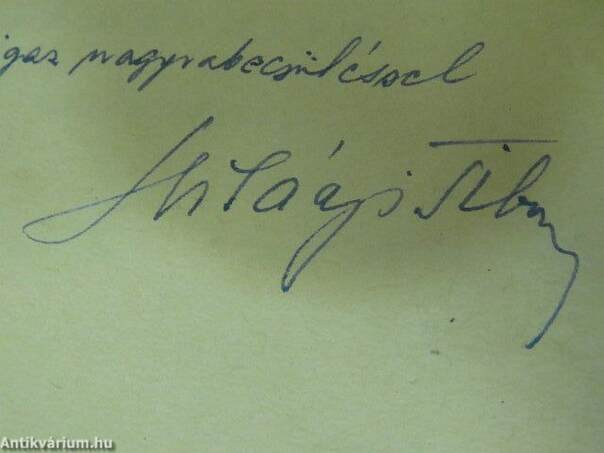 igaz nagyrabecsüléssel
Szilágyi Tibor
Antikvárium.hu